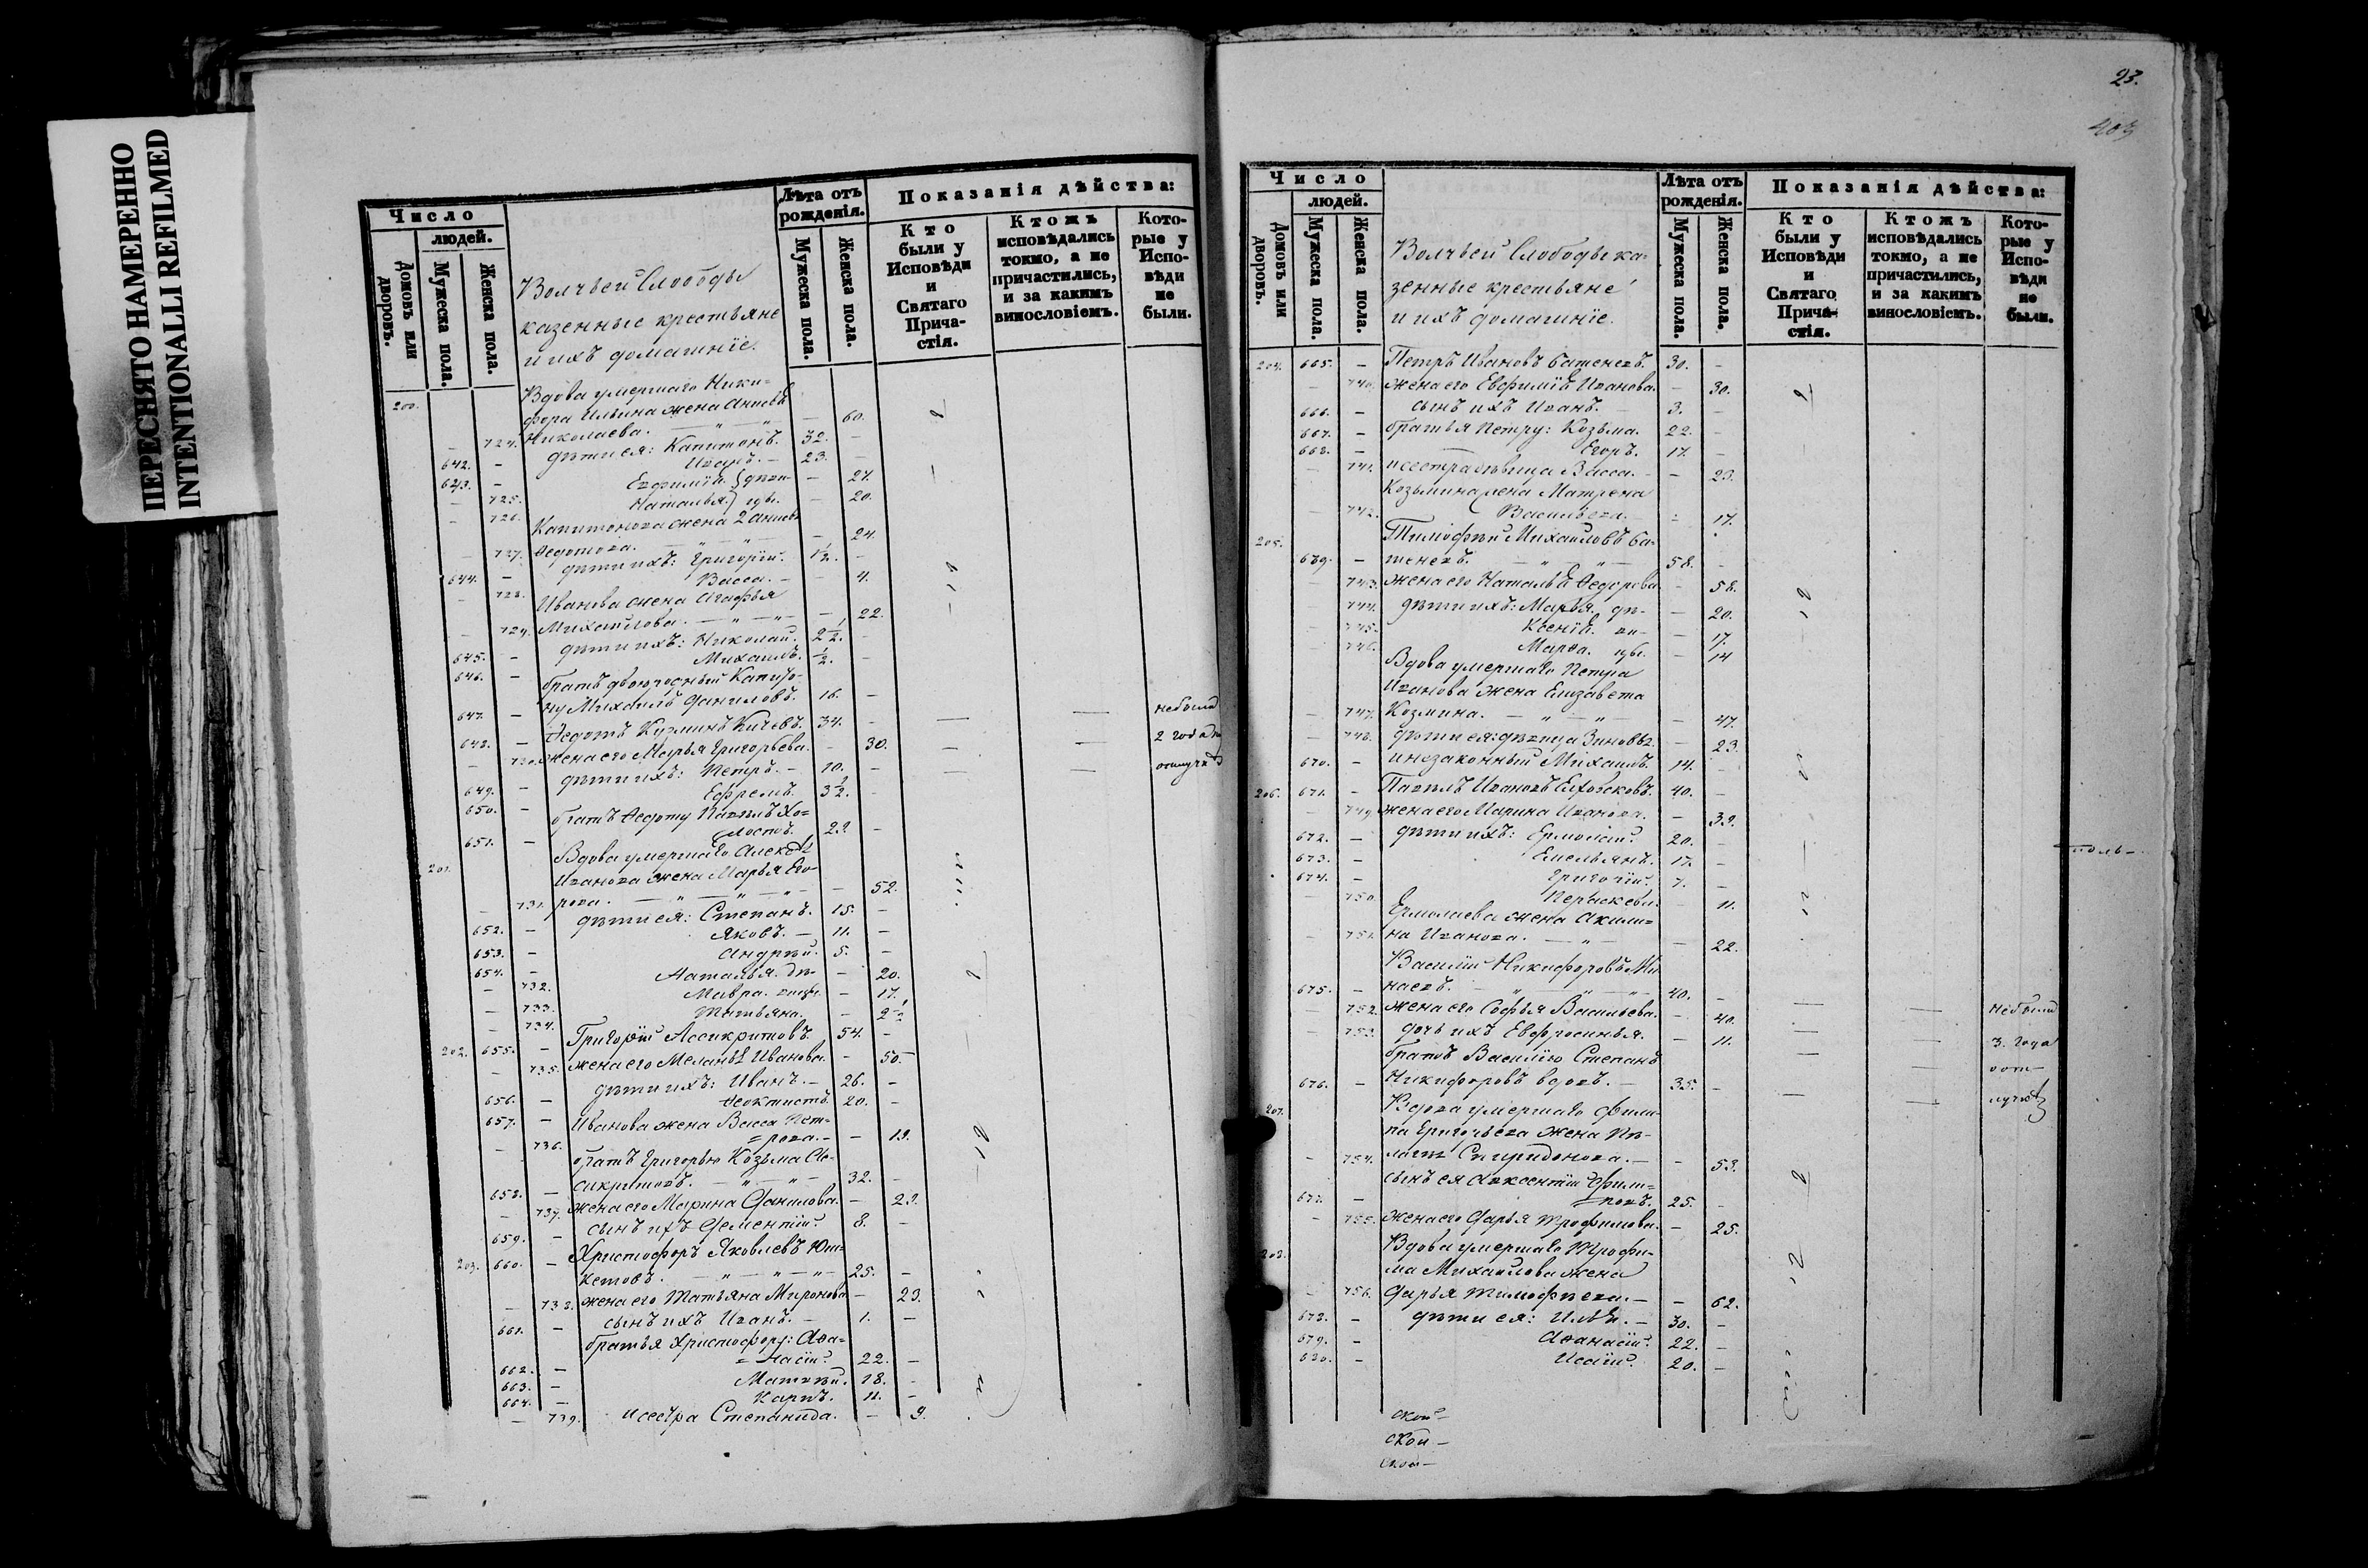 ПЕРЕСНЯТО НАМЕРЕННО
INTENTIONALLI REFILMED
Число
людей.
Домовъ или дворовъ.
Мужеска пола.
Женска пола.
Волчьей Слободы
казенные крестьяне
и ихъ домашніе.
Лѣта отъ рожденія.
Мужеска пола.
Женска пола.
Показанія дѣйства:
Кто были у Исповѣди и Святаго Причастія.
Ктожъ исповѣдались токмо, а не причастились, и за какимъ винословіемъ.
Которые у Исповѣди не были.
200. Вдова умершаго Ники=
фора Ильина жена
– 724. Николаева. – 60.
642. – дѣти ея: Капитонъ. 32. –
643. – Иванъ. – 23. –
– 725. Евфимія. – 27.
– 726. Наталья. – 20.
Капитонова жена 2
– 727. Федотова. – 24.
644. – дѣти ихъ: Григорій. 1½. –
– 728. Васса. – – 4.
Иванова жена Агафья
– 729. Михайлова. – 22.
645. – дѣти ихъ: Николай. 2½. –
646. – Михаилъ. ½. –
братъ двоюродный Капито-
647. – ну Михаилъ Даниловъ. 16. –
648. – Федотъ Кузминъ Кичевъ. 34. – небыли
– 730. жена его Марья Григорьева. – 30. 2 года
649. – дѣти ихъ: Петръ. – 10. –
650. – Ефремъ. 3½. –
братъ Федоту Павелъ Хо=
651. – лостъ. 29. –
201. Вдова умершаго
Иванова жена Марья Его-
– 731. рова. – 52.
652. – дѣти ея: Степанъ. 15. –
653. – Яковъ. – 11. –
654. – Андрей. 5. –
– 732. Наталья. дѣ- – 20.
– 733. Мавра. – 17.
– 734. Татьяна. – 2½
202. 655. – Григорій Ассикритовъ. 54. –
– 735. жена его Меланья Иванова. – 50.
656. – дѣти ихъ: Иванъ. – 26. –
657. – Феоктистъ. 20. –
Иванова жена Васса Пет=
– 736. =рова. – – 19.
братъ Григорью Козьма Ас-
658. – сикритовъ. 32. –
– 737. жена его Марина Данилова. – 29.
659. – сынъ ихъ Дементій. 8. –
203. 660. – Христофоръ Яковлевъ
25. –
– 738. жена его Татьяна Миронова – 23.
661. – сынъ ихъ Иванъ. – 1. –
братья Христофору: Аѳа=
662. – =насій. 22. –
663. – Матвѣй. 18. –
664. – Карпъ. 11. –
– 739. и сестра Степанида. – 9.
23.
403
Число
людей.
Домовъ или дворовъ.
Мужеска пола.
Женска пола.
Волчьей Слободы ка=
зенные крестьяне
и ихъ домашніе.
Лѣта отъ рожденія.
Мужеска пола.
Женска пола.
Показанія дѣйства:
Кто были у Исповѣди и Святаго Причастія.
Ктожъ исповѣдались токмо, а не причастились, и за какимъ винословіемъ.
Которые у Исповѣди не были.
204. 665. – Петръ Ивановъ Батеневъ. 30. –
– 740. жена его Евфимія Иванова. – 30.
666. – сынъ ихъ Иванъ. 3. –
667. – братья Петру: Козьма. 22. –
668. – Егоръ. 17. –
– 741. и сестра дѣвица Васса. – 23.
Козьмина жена Матрена
– 742. Васильева. – 17.
205. Тимофей Михаиловъ Ба-
669. – теневъ. 58. –
– 743. жена его Наталья Федорова – 58.
– 744. дѣти ихъ: Марья. дѣ- – 20.
– 745. Ксенія. ви- – 17.
– 746. Марѳа. цы. – 14
Вдова умершаго Петра
Иванова жена Елизавета
– 747. Козмина. – 47.
– 748. дѣти ея: дѣвица – 23.
670. – и незаконный Михаилъ. 14. –
206. 671. – Павелъ Ивановъ 40. –
– 749. жена его Марина Иванова. – 39.
672. – дѣти ихъ: Ермолай. 20. –
673. – Емельянъ. 17. –
674. – Григорій. 7. –
– 750. – 11.
Ермолаева жена Акили=
– 751. на Иванова. – 22.
Василій Никифоровъ
675. – 40. –
– 752. жена его Софья Васильева. – 40. небыли
– 753. дочь ихъ Евфросинья. – 11. 3. года
братъ Василію Степанъ
676. – Никифоровъ вдовъ. – 35. –
207. Вдова умершаго Фили=
па Григорьева жена Пе-
– 754. лагея Спиридонова. – – 53.
сынъ ея Авксентій Фили=
677. – =повъ. 25. –
– 755. жена его Дарья Трофимова. – 25.
208. Вдова умершаго Трофи=
ма Михаилова жена
– 756. Дарья Тимофѣева. – – 62.
678. – дѣти ея: Илья. – 30. –
679. – Аѳанасій. 22. –
680. – Исаій. 20. –